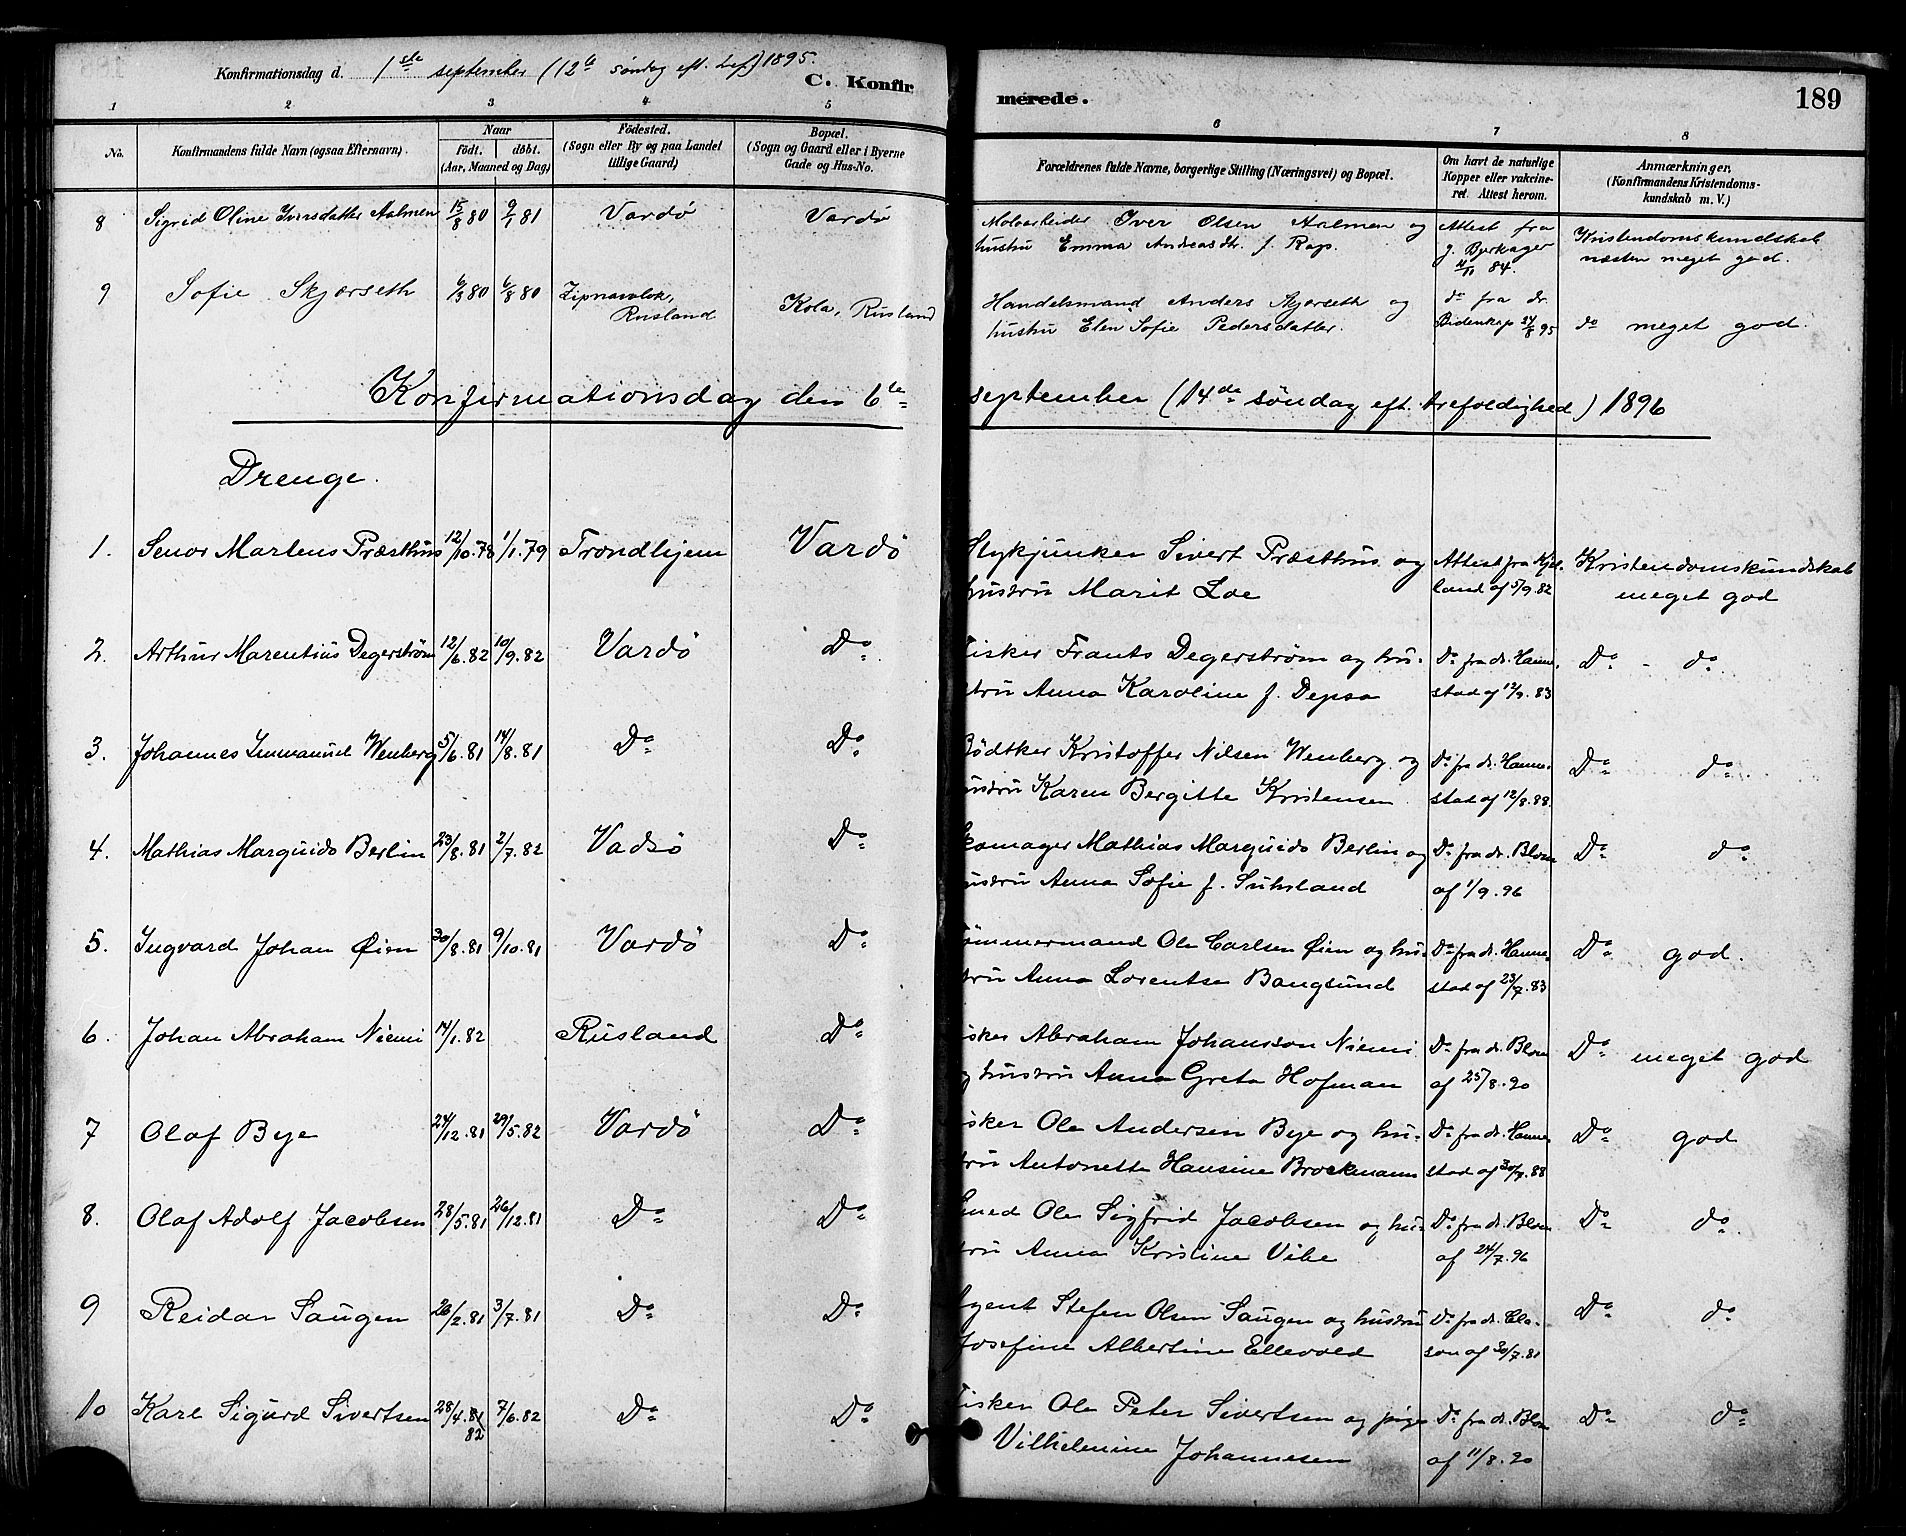 Konfirmationsdag d. 1ste september (12te søndag eft. tref) 1895.
C. Konfirmerede.
189
1 2 3 4 5 6 7 8
No. Konfirmandens fulde Navn (ogsaa Efternavn). Naar Født. døbt. (Aar, Maaned og Dag) Fødested. (Sogn eller By og paa Landet tillige Gaard) Bopæl. (Sogn og Gaard eller i Byerne Gade og Hus-No. Forældrenes fulde Navne, borgerlige Stilling (Næringsvei) og Bopæl. Om havt de naturlige Kopper eller vakcineret. Attest herom. Anmærkninger. (Konfirmandens Kristendomskundskab m. V.)
8 Sigrid Oline Iversdatter Aalmen 15/8 80 9/1 81 Vardø Vardø Moloarbeider Iver Olsen Aalmen og Attest fra Kristendomskundskab
hustru Emma Andreasdtr. f. Rap. J. Byrkager 11/11 84. næsten meget god.
9 Sofie Skjærseth 6/3 80 6/8 80 Zipnavolok, Rusland Kola, Rusland Handelsmand Anders Skjerseth og do fra dr. do meget god.
hustru Elen Sofie Pedersdatter. Bidenkap 24/8 95
Konfirmationsdag den 6te september (14de søndag eft. trefoldighed) 1896
Drenge.
1. Senor Martens Præsthus 12/10.78 1/1.79 Trondhjem Vardö Stykjunker Sivert Præsthus og Attest fra Kjel- Kristendomskundskab
hustru Marit Loe land af 5/9.82 meget god
2. Arthur Marentius Degerström 12/6.82 10/9.82 Vardö Do Fisker Frants Degerström og hu- Do fra dr. Hanne- Do - do
stru Anna Karoline f. Depsa stad af 12/9.83
3. Johannes Immanuel Wenberg 5/6.81 14/8.81 Do Do Bödtker Kristoffer Nilsen Wenberg og Do fra dr. Hanne- Do do
hustru Karen Bergitte Kristensen stad af 12/8.88.
4. Mathias Marquido Berlin 23/8.81 2/7.82 Vadsö Do Skomager Mathias Marquido Berlin og Do fra dr. Blom Do do
hustru Anna Sofie f. Suhsland af 1/9.96
5. Ingvard Johan Öien 30/8.81 9/10.81 Vardö Do Tömmermand Ole Carlsen Öien og hu- Do fra dr. Hanne- Do god.
stru Anna Lorentse Bangsund stad af 23/7.83
6. Johan Abraham Niemi 14/1.82 Rusland Do Fisker Abraham Johansson Niemi Do fra dr. Blom Do meget god
og hustru Anna Greta Hofman af 25/8.90
7 Olaf Bye 24/12.81 29/5.82 Vardö Do Fisker Ole Andersen Bye og hu- Do fra dr. Hanne- Do god
stru Antonette Hansine Brockmann stad af 30/7.88
8. Olaf Adolf Jacobsen 28/5.81 26/12.81 Do Do Smed Ole Sigfrid Jacobsen og hu- Do fra dr. Blom Do do
stru Anna Kristine Vibe af 24/7.96
9 Reidar Saugen 26/2.81 3/7.81 Do Do Agent Stefen Olsen Saugen og hustru Do fra dr. Cla- Do do
Josefine Albertine Ellevold son af 30/7.81
10 Karl Sigurd Sivertsen 28/4.81 82 7/6.82 Do Do Fisker Ole Peter Sivertsen og pige Do fra dr. Blom Do do
Vilhelmine Johannesen af 11/8.90